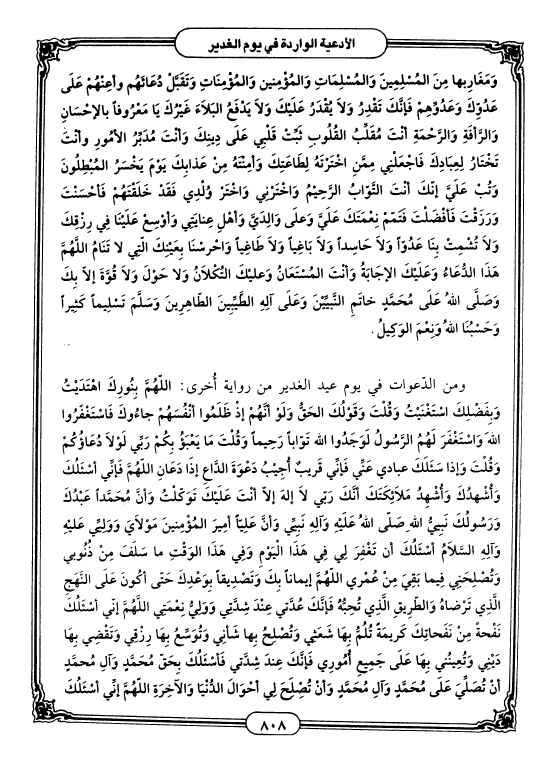 الأدعية الواردة في يوم الغدير
وَمَغَارِبِها مِنَ المُسْلِمِينَ وَالمُسْلِمَاتِ وَالمُؤْمِنينِ وَالمُؤْمِنَاتِ وَتَقَبَّلْ دُعَائَهُم وأعِنْهُمْ عَلَى
عَدُوِّكَ وَعَدُوِّهِمْ فَإنَّكَ تَقْدِرُ وَلاَ يُقْدَرُ عَلَيْكَ وَلاَ يَدْفَعُ البَلاَءَ غَيْرُكَ يَا مَعْرُوفاً بِالإحْسَانِ
وَالرَّأْفَةِ وَالرَّحْمَةِ أنْتَ مُقَلِّبُ القُلُوبِ ثَبِّتْ قَلْبِي عَلَى دِينِكَ وَأنْتَ مُدَبِّرُ الأمُورِ وأنْتَ
تَخْتَارُ لِعِبَادِكَ فَاجْعَلْنِي مِمَّنِ اخْتَرْتَهُ لِطَاعَتِكَ وَأمِنْتَهُ مِنْ عَذابِكَ يَوْمَ يَخْسَرُ المُبْطِلُونَ
وَتُبْ عَلَيَّ إنَّكَ أنْتَ التَّوَّابُ الرَّحِيمُ وَاخْتَرْنِي وَاخْتَرْ وُلْدِي فَقَدْ خَلَقْتَهُمْ فَأحْسَنْتَ
وَرَزَقْتَ فَأفْضَلْتَ فَتَمِّمْ نِعْمَتَكَ عَلَيَّ وَعلَى وَالِدَيَّ وَأهْلِ عِنايَتِي وَأوْسِعْ عَلَيْنَا فِي رِزْقِكَ
وَلاَ تُشْمِتْ بِنَا عَدُوّاً وَلاَ حَاسِداً وَلاَ بَاغِياً وَلاَ طَاغِياً وَاحْرُسْنا بِعَيْنِكَ الَّتِي لا تَنَامُ اللَّهُمَّ
هَذَا الدُّعَاءُ وَعَلَيْكَ الإجَابَةُ وَأنْتَ المُسْتَعَانُ وَعليْكَ التُّكْلاَنُ وَلا حَوْلَ وَلاَ قُوَّةَ إلاَّ بِكَ
وَصَلَّى اللهُ عَلَى مُحَمَّدٍ خاتَمِ النَّبِيِّينَ وَعَلَى آلِهِ الطَّيِّبِينَ الطَّاهِرِينَ وَسَلَّمَ تَسْلِيماً كَثِيراً
وَحَسْبُنَا اللهُ وَنِعْمَ الوَكِيلُ.
ومن الدّعوات في يوم عيد الغدير من رواية أُخرى: اللَّهُمَّ بِنُورِكَ اهْتَدَيْتُ
وَبِفَضْلِكَ اسْتَغْنَيْتُ وَقُلْتَ وَقَوْلُكَ الحَقُّ وَلَوْ أنَّهُمْ إذْ ظَلَمُوا أنْفُسَهُمْ جاءُوكَ فَاسْتَغْفَرُوا
اللهَ وَاسْتَغْفَرَ لَهُمُ الرَّسُولُ لَوَجَدُوا الله تَوَاباً رَحِيماً وَقُلْتَ مَا يَعْبَؤُ بِكُمْ رَبِّي لَوْلاَ دُعَاؤُكُمْ
وَقُلْتَ وَإذا سَئَلَكَ عبادي عَنِّي فَإنِّي قَرِيبٌ أُجِيْبُ دَعْوَةَ الدَّاعِ إذا دَعَانِ اللَّهُمَّ فَإنِّي أسْئَلُكَ
وَأُشْهِدُكَ وَأُشْهِدُ مَلاَئِكَتَكَ أنَّكَ رَبِّي لاَ إلهَ إلاَّ أنْتَ عَلَيْكَ تَوَكَّلْتُ وَأنَّ مُحَمَّداً عَبْدُكَ
وَرَسُولُكَ نَبِيُّ اللهِ صَلَّى اللهُ عَلَيْهِ وَآلِهِ نَبِيِّي وَأنَّ عَلِيّاً أمِيرَ المُؤْمِنِينَ مَوْلاَيَ وَوَلِيِّي عَليْهِ
وَآلِهِ السَّلاَمُ أسْئَلُكَ أن تَغْفِرَ لِي فِي هَذَا الْيَوْمِ وَفِي هَذَا الوَقْتِ ما سَلَفَ مِنْ ذُنُوبي
وَتُصْلِحَنِي فِيما بَقِيَ مِنْ عُمْرِي اللَّهُمَّ إيماناً بِكَ وَتَصْدِيقاً بِوَعْدِكَ حَتَّى أكُونَ عَلَى النَّهْجِ
الَّذِي تَرْضَاهُ وَالطَّرِيقِ الَّذِي تُحِبُّهُ فَإنَّكَ عُدَّتي عِنْدَ شِدَّتي وَوَلِيُّ نِعْمَتِي اللَّهُمَّ إنِّي أسْئَلُكَ
نَفْحَةً مِنْ نَفَحَاتِكَ كَرِيمَةً تُلُمُّ بِهَا شَعَثِي وَتُصْلِحُ بِها شَأنِي وَتُوَسِّعُ بِهَا رِزْقِي وَتَقْضِي بِهَا
دَيْنِي وَتُعِينُنِي بِها عَلَى جَمِيعِ أُمُورِي فَإنَّكَ عِنْدَ شِدَّتِي فَأسْئَلُكَ بِحَقِّ مُحَمَّدٍ وَآلِ مُحَمَّدٍ
أنْ تُصَلِّيَ عَلَى مُحَمَّدٍ وَآلِ مُحَمَّدٍ وَأنْ تُصْلِحَ لِي أحْوَالَ الدُّنْيَا وَالآخِرَةِ اللَّهُمَّ إنِّي أسْئَلُكَ
٨٠٨